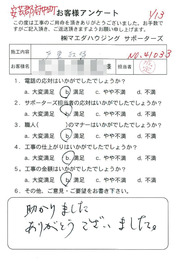 お客様アンケート
1/13
この度は工事のご用命を頂きありがとうございました。お手数で
すがご記入頂き、ご返送頂きますようお願い申し上げます。
㈱マエダハウジング サポーターズ
施工内容
NO.41033
お客様名
担当者
1．電話の応対はいかがでしたでしょうか？
a 大変満足 b 満足 c やや不満 d 不満
2．サポーターズ担当者の応対はいかがでしたでしょうか？
a 大変満足 b 満足 c やや不満 d 不満
3．職人( )のマナーはいかがでしたでしょうか？
a 大変満足 b 満足 c やや不満 d 不満
4．工事の仕上がりはいかがでしたでしょうか？
a 大変満足 b 満足 c やや不満 d 不満
5．工事の金額はいかがでしたでしょうか？
a 大変満足 b 満足 c やや不満 d 不満
6．その他、ご意見・ご要望をお書き下さい。
助かりました
ありがとうございました。